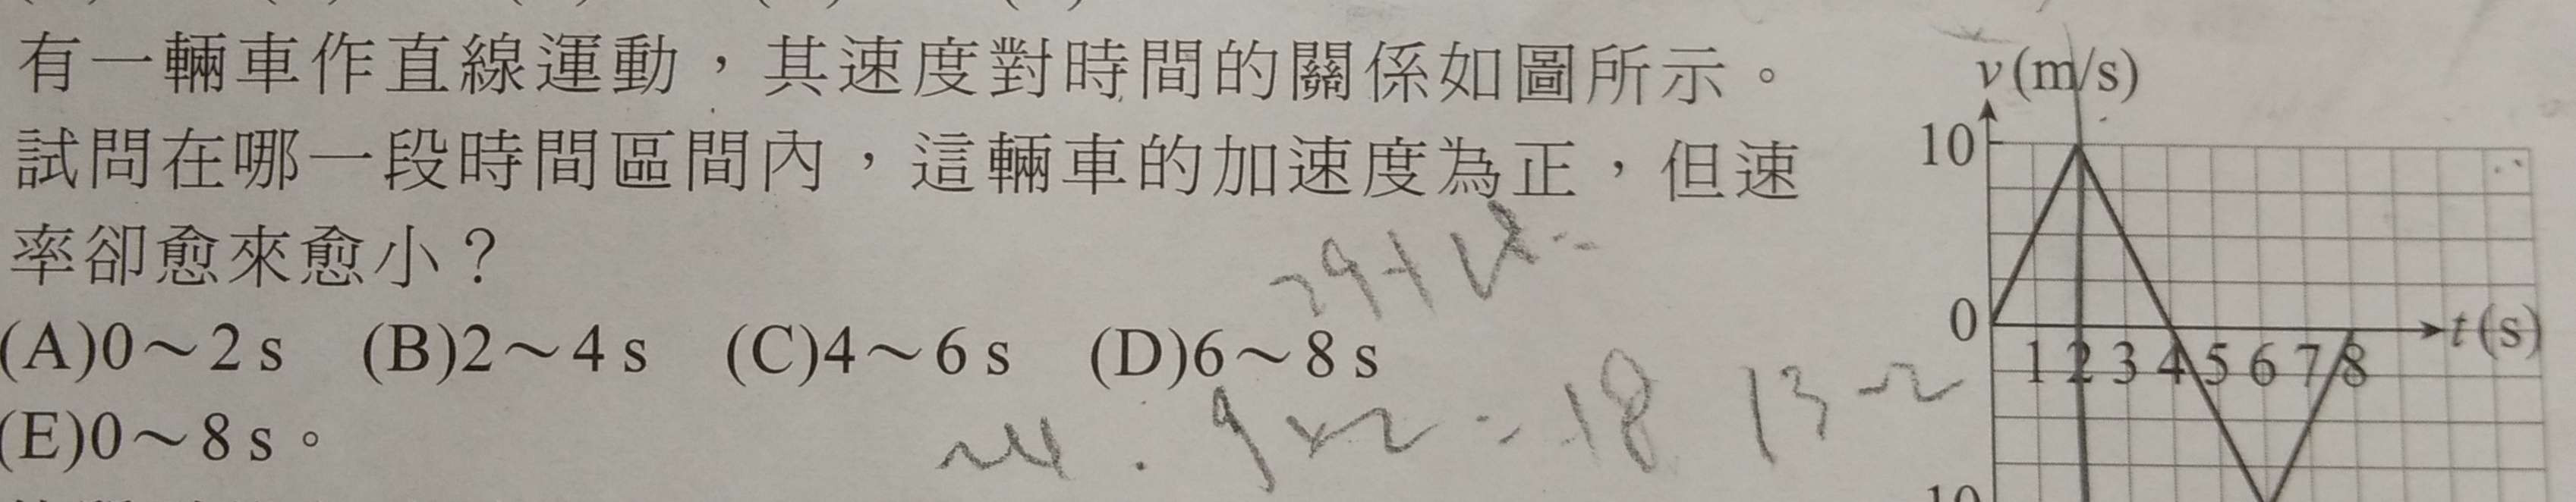 有一輛車作直線運動，其速度對時間的關係如圖所示。
試問在哪一段時間區間內，這輛車的加速度為正，但速
率卻愈來愈小？
(A)0～2 s (B)2～4 s (C)4～6 s (D)6～8 s
(E)0～8 s。
v(m/s)
10
0
t(s)
1 2 3 4 5 6 7 8
10
9×2=18
13-2